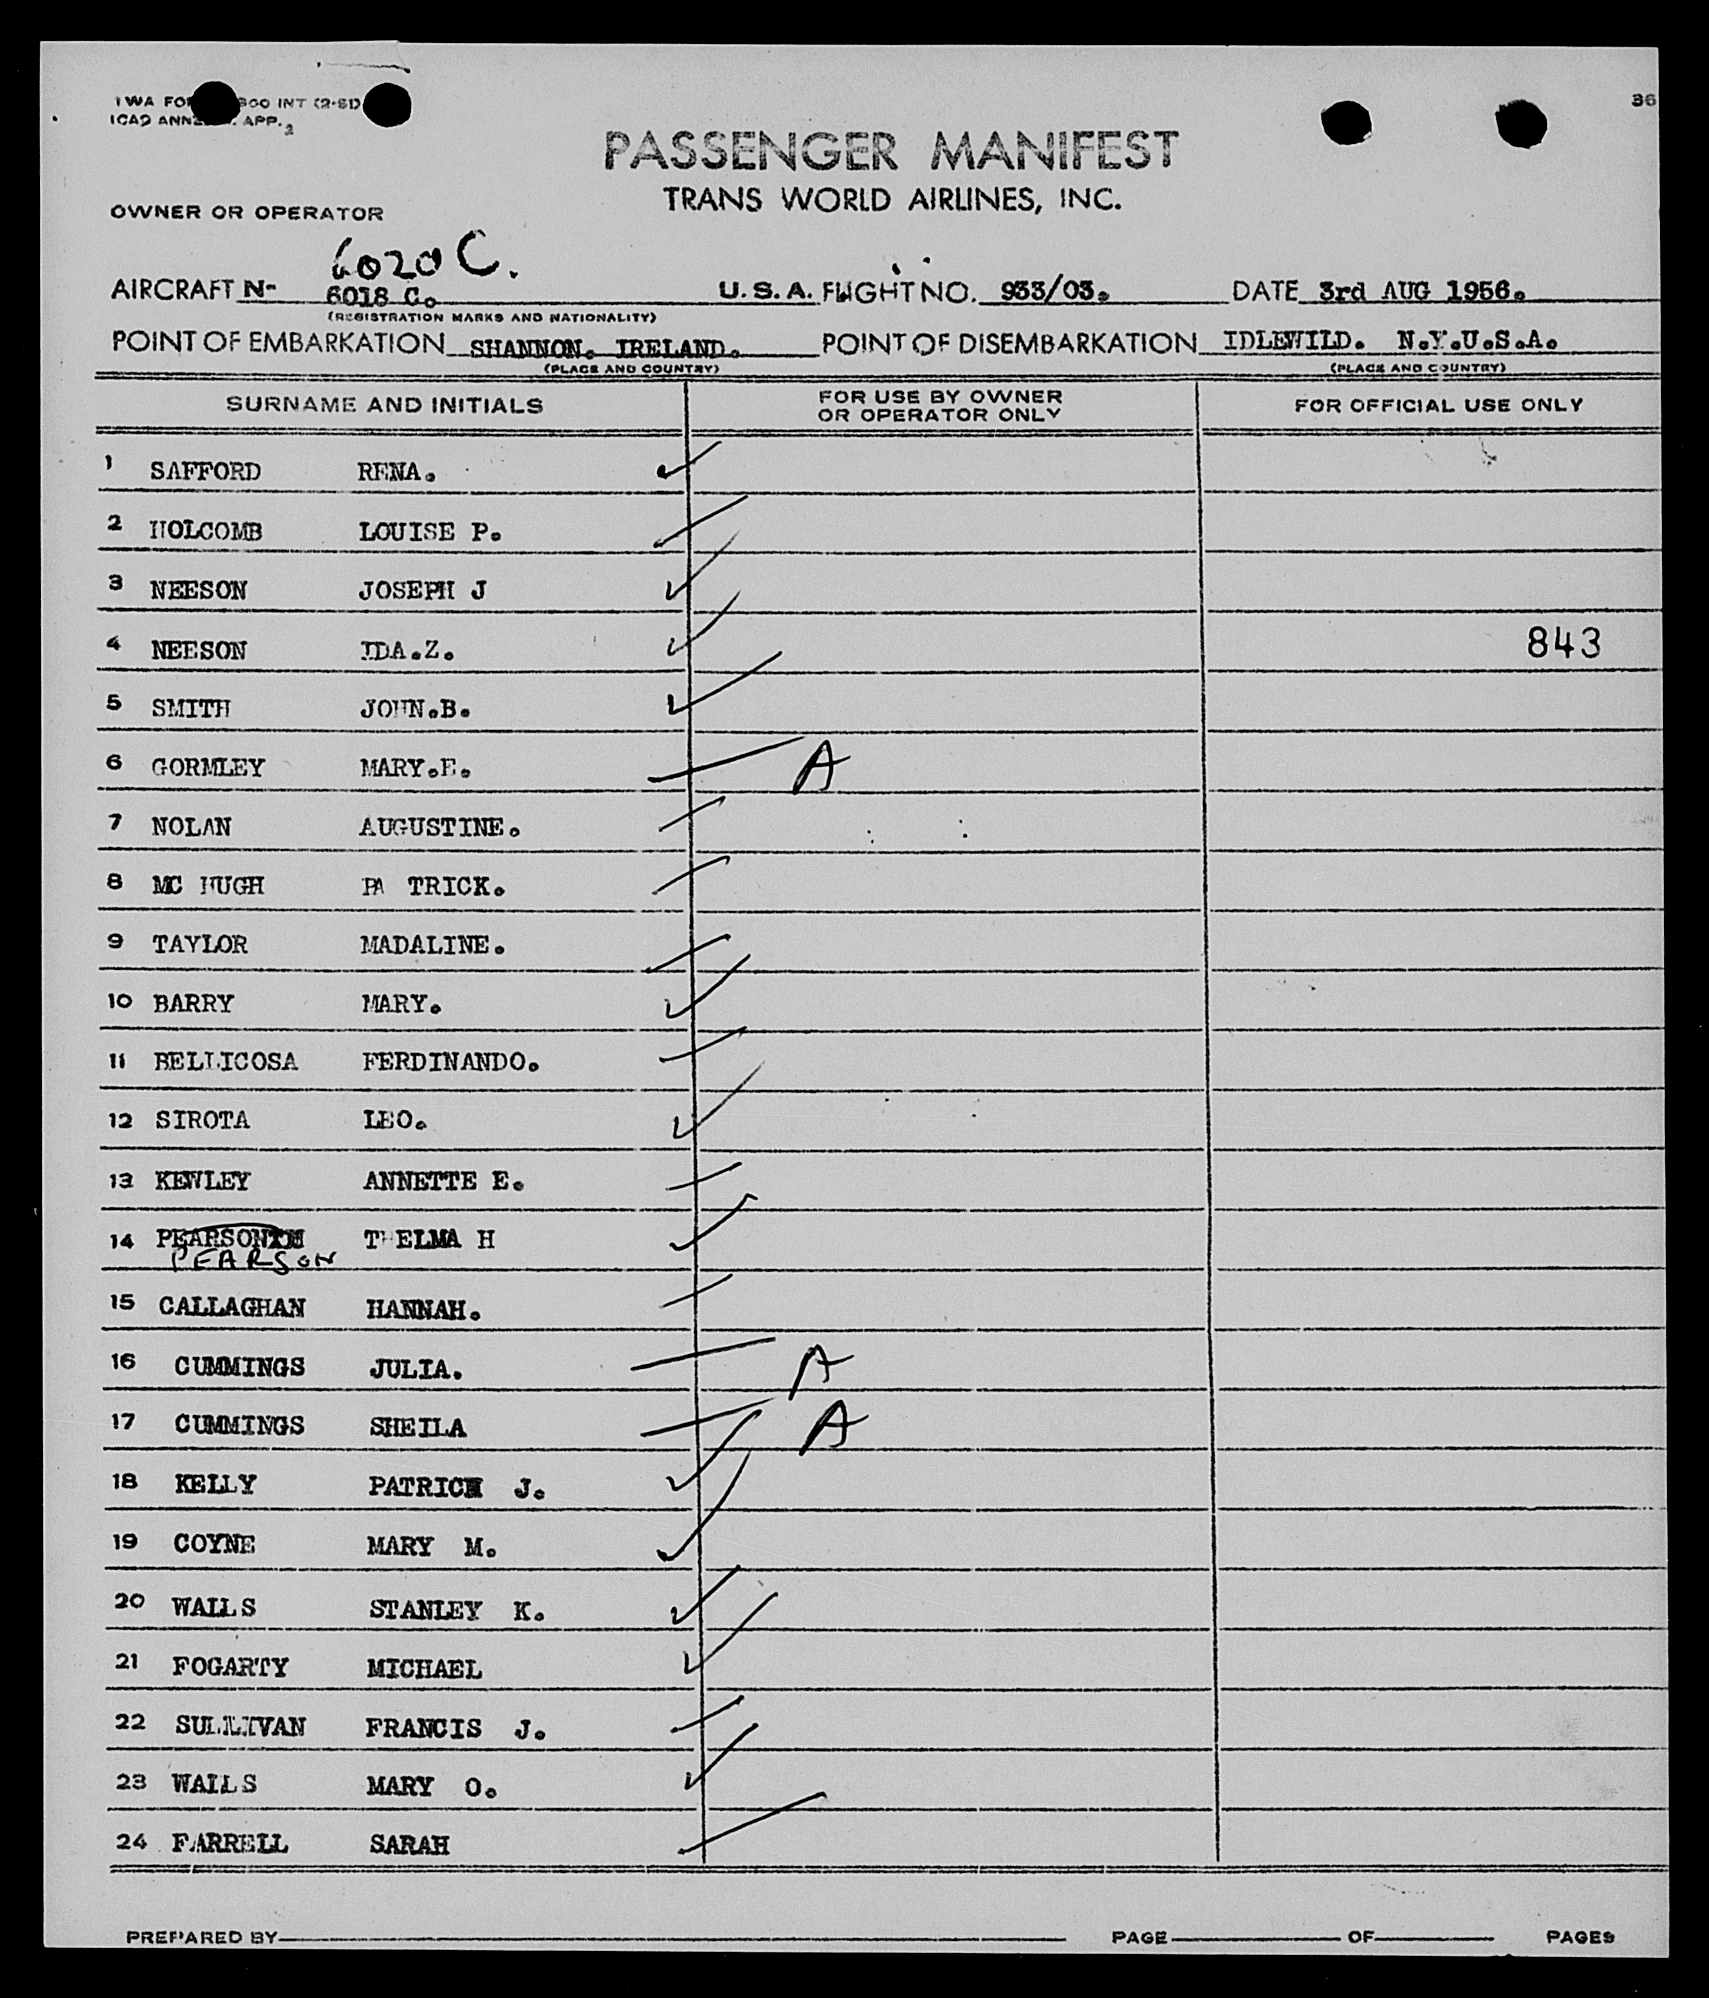 TWA FO 300 INT (2-51)
ICAO ANNEX APP. 2
36
PASSENGER MANIFEST
TRANS WORLD AIRLINES, INC.
OWNER OR OPERATOR
6020 C.
AIRCRAFT N- 6018 C. U.S.A. FLIGHT NO. 933/03. DATE 3rd AUG 1956.
(REGISTRATION MARKS AND NATIONALITY)
POINT OF EMBARKATION SHANNON. IRELAND. POINT OF DISEMBARKATION IDLEWILD. N.Y.U.S.A.
(PLACE AND COUNTRY) (PLACE AND COUNTRY)
SURNAME AND INITIALS FOR USE BY OWNER OR OPERATOR ONLY FOR OFFICIAL USE ONLY
1 SAFFORD RENA.
2 HOLCOMB LOUISE P.
3 NEESON JOSEPH J
4 NEESON IDA.Z. 843
5 SMITH JOHN.B.
6 GORMLEY MARY.E. A
7 NOLAN AUGUSTINE.
8 MC HUGH PA TRICK.
9 TAYLOR MADALINE.
10 BARRY MARY.
11 BELLICOSA FERDINANDO.
12 SIROTA LEO.
13 KEWLEY ANNETTE E.
14 PEARSON THELMA H
PEARSON
15 CALLAGHAN HANNAH.
16 CUMMINGS JULIA. A
17 CUMMINGS SHEILA A
18 KELLY PATRICK J.
19 COYNE MARY M.
20 WALLS STANLEY K.
21 FOGARTY MICHAEL
22 SULLIVAN FRANCIS J.
23 WALLS MARY O.
24 FARRELL SARAH
PREPARED BY PAGE OF PAGES